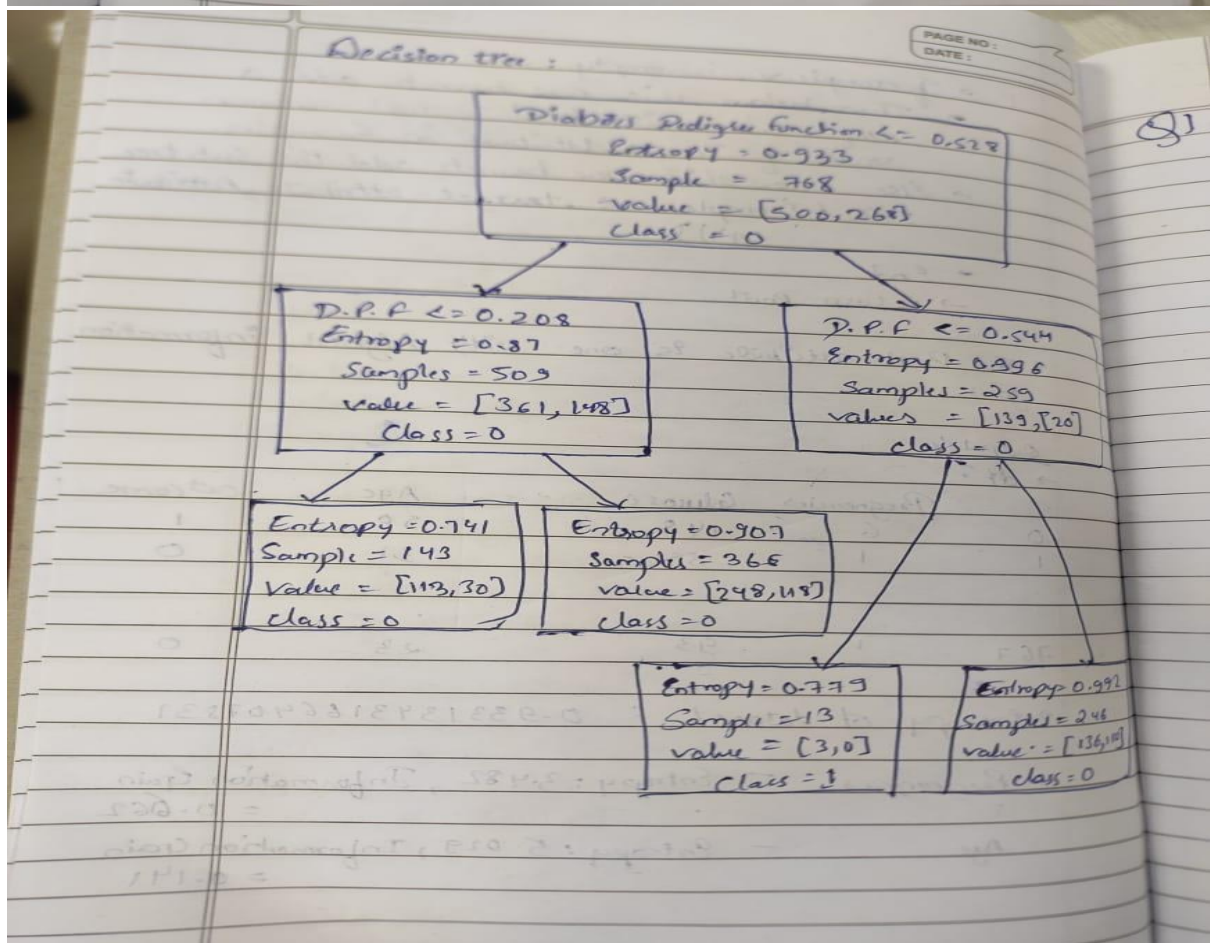 PAGE NO :
DATE :
Decision tree :
Diabetes Pedigree function <= 0.528
Entropy = 0.933
Sample = 768
value = [500, 268]
class = 0
D.P.F <= 0.208
Entropy = 0.87
Samples = 509
value = [361, 148]
Class = 0
D.P.F <= 0.544
Entropy = 0.996
Samples = 259
values = [139, 120]
class = 0
Entropy = 0.741
Sample = 143
Value = [113, 30]
class = 0
Entropy = 0.907
Samples = 366
value = [248, 118]
class = 0
Entropy = 0.779
Sample = 13
value = [3, 0]
Class = 1
Entropy = 0.992
Samples = 246
value = [136, 110]
class = 0